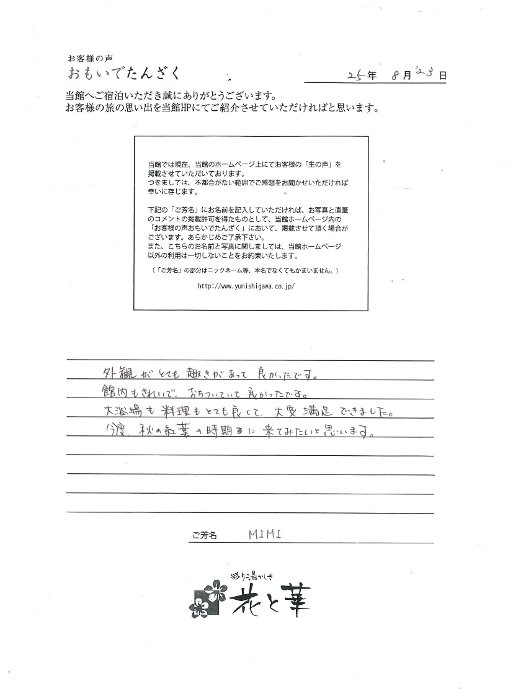 お客様の声
おもいでたんざく
25年 8月23日
当館へご宿泊いただき誠にありがとうございます。
お客様の旅の思い出を当館HPにてご紹介させていただければと思います。
当館では現在、当館のホームページ上にてお客様の「生の声」を
掲載させていただいております。
つきましては、不都合がない範囲でご感想をお聞かせいただければ
幸いに存じます。
下記の「ご芳名」にお名前を記入していただければ、お写真と直筆
のコメントの掲載許可を得たものとして、当館ホームページ内の
「お客様の声おもいでたんざく」において、掲載させて頂く場合が
ございます。あらかじめご了承下さい。
また、こちらのお名前と写真に関しましては、当館ホームページ
以外の利用は一切しないことをお約束いたします。
（「ご芳名」の部分はニックネーム等、本名でなくてもかまいません。）
http://www.yunishigawa.co.jp/
外観がとても趣きがあって良かったです。
館内もきれいで、おちついていて良かったです。
大浴場も料理もとても良くて、大変満足できました。
今度、秋の紅葉の時期に来てみたいと思います。
ご芳名 MIMI
彩り湯かしき
花と華